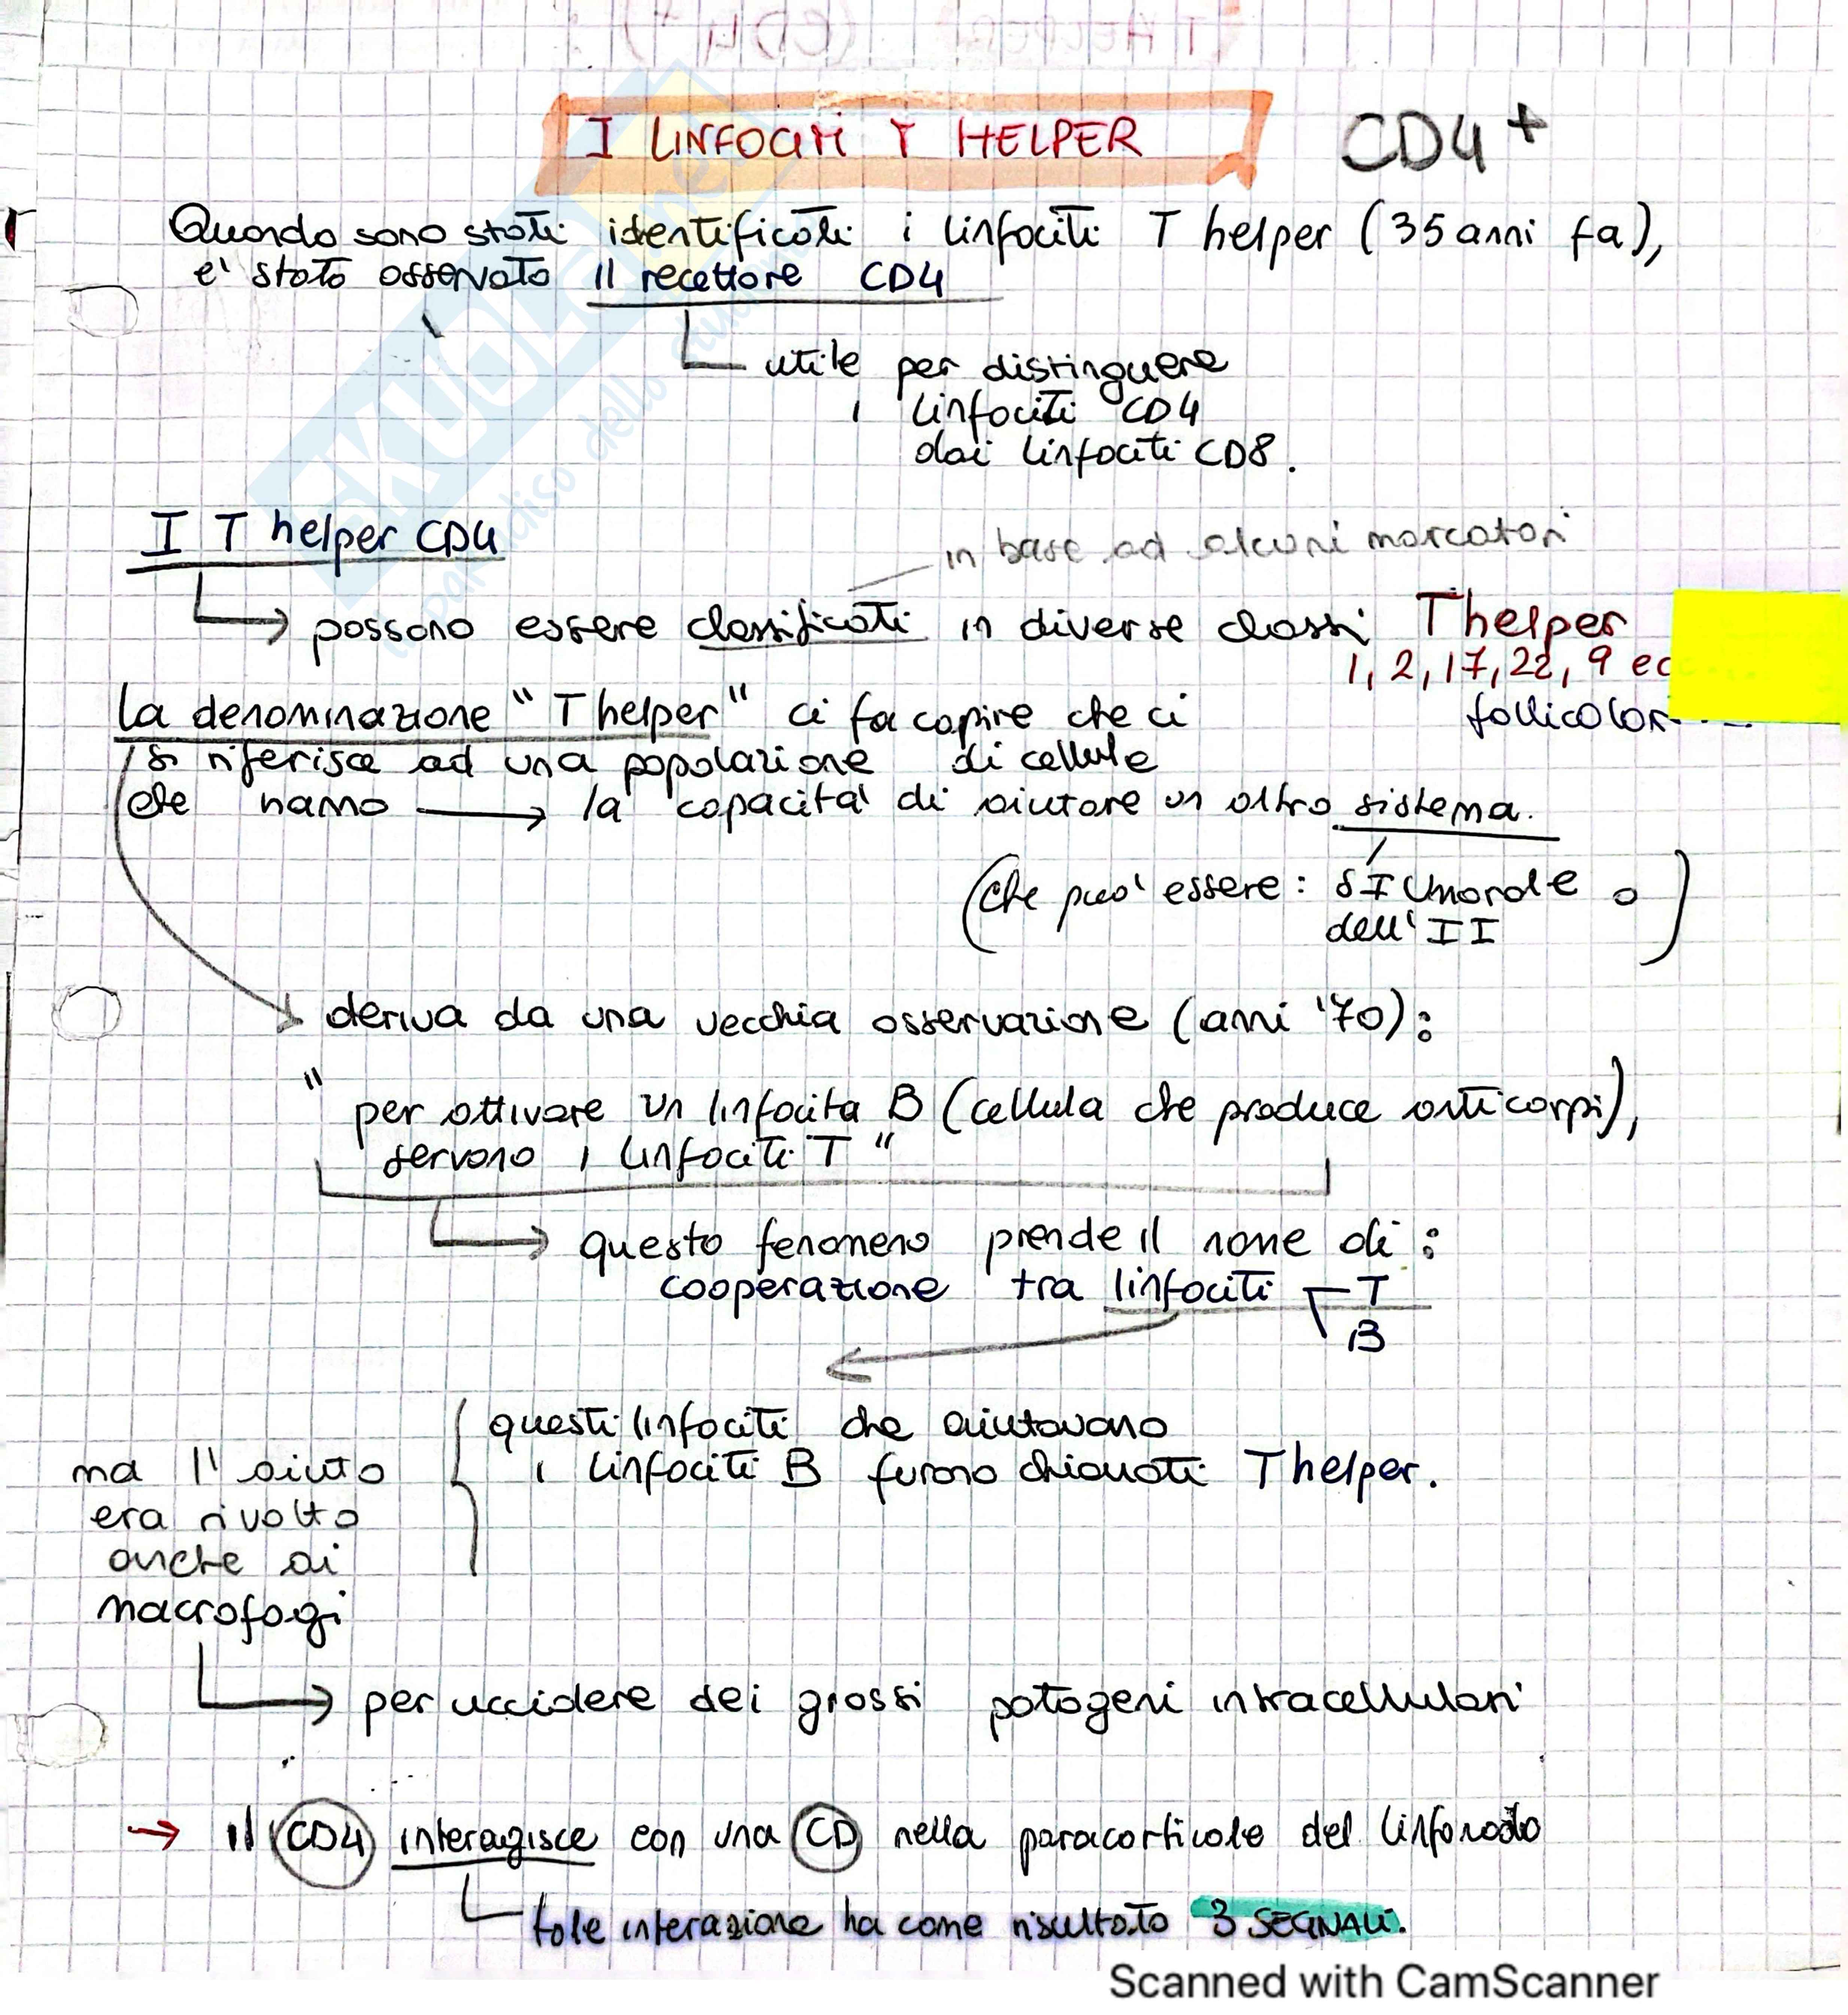 I LINFOCITI T HELPER CD4+
Quando sono stati identificati i linfociti T helper (35 anni fa),
e' stato osservato il recettore CD4
utile per distinguere
i linfociti CD4
dai linfociti CD8.
I T helper CD4
in base ad alcuni marcatori
possono essere classificati in diverse classi T helper
1, 2, 17, 22, 9 ec
La denominazione "T helper" ci fa capire che ci
follicolari
si riferisce ad una popolazione di cellule
che hanno → la capacità di aiutare un altro sistema.
(che puo' essere: SI Umorale o
dell' II)
deriva da una vecchia osservazione (anni '70):
"per attivare un linfocita B (cellula che produce anticorpi),
servono i linfociti T"
→ questo fenomeno prende il nome di:
cooperazione tra linfociti T
B
questi linfociti che aiutavano
i linfociti B furono chiamati T helper.
ma l'aiuto
era rivolto
anche ai
macrofagi
→ per uccidere dei grossi patogeni intracellulari
→ il CD4 interagisce con una CD nella paracorticale del linfonodo
tale interazione ha come risultato 3 SEGNALI.
Scanned with CamScanner